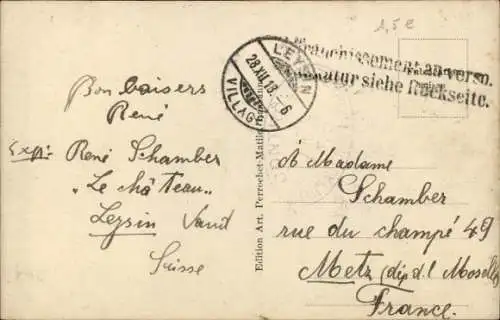 1,5 €
Affranchissement au verso.
Frankatur siehe Rückseite.
LEYSIN
28.XII.18.-6
VILLAGE
Bon baisers
René
Exp: René Schamber
"Le château"
Leysin Vaud
Suisse
Edition Art. Perrochet-Matile
à Madame
Schamber
rue du champé 49
Metz (dép. d. l. Moselle)
France.